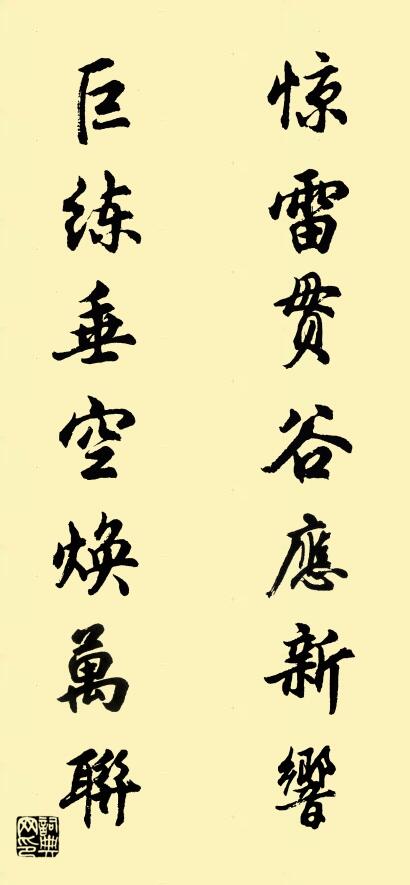 惊雷贯谷應新響
巨练垂空焕萬聯
詞典网印